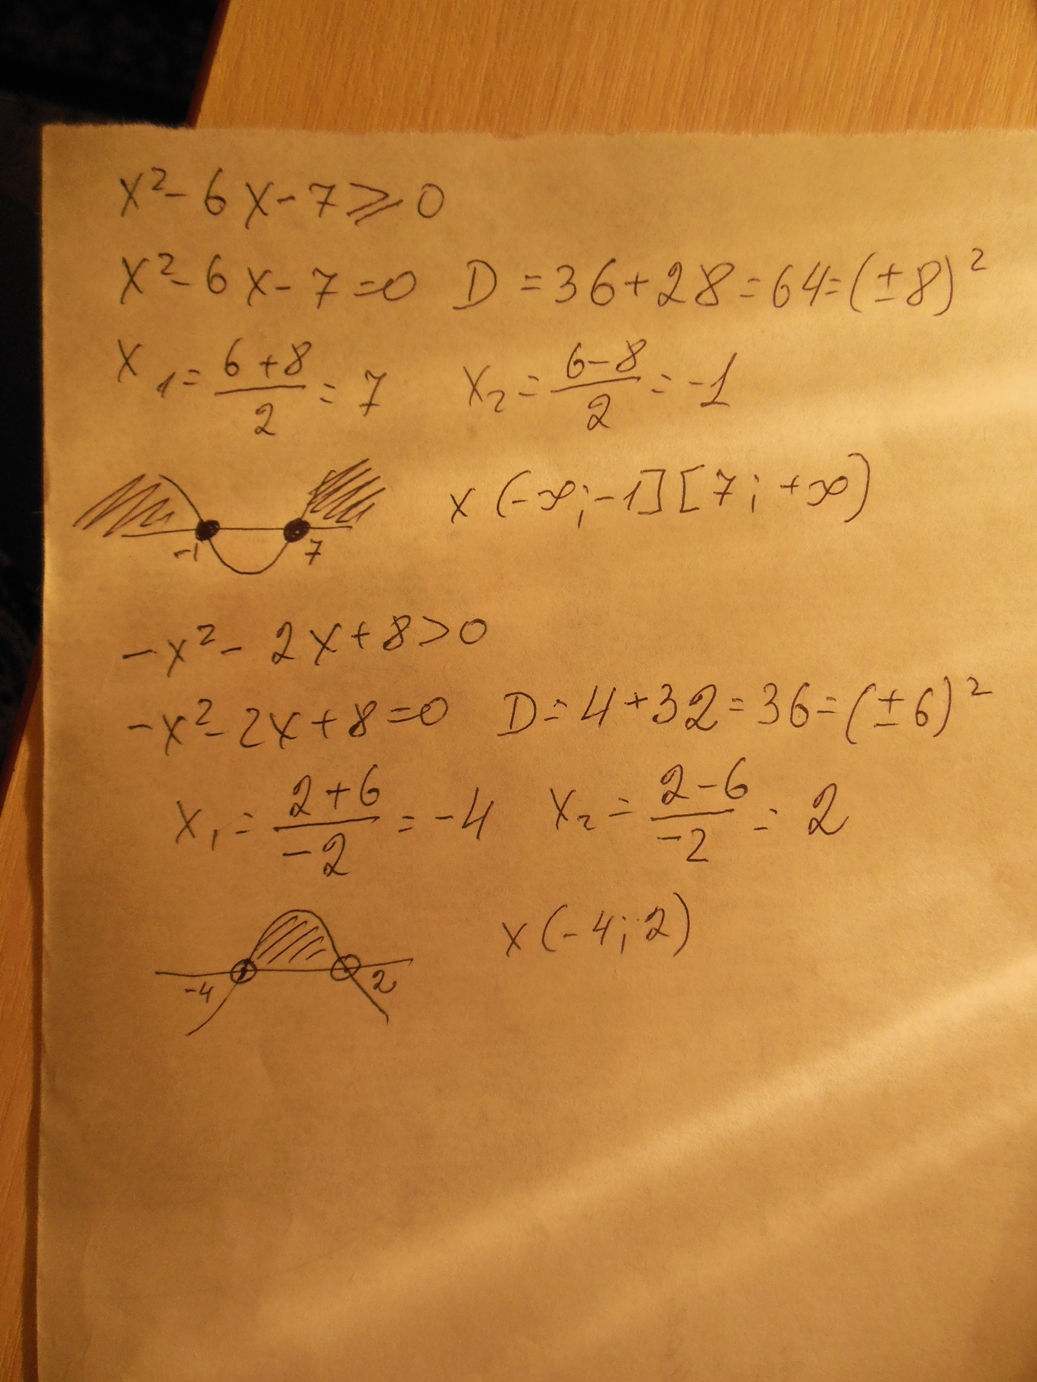 x² - 6x - 7 ⩾ 0
x² - 6x - 7 = 0 D = 36 + 28 = 64 = (±8)²
x₁ = (6+8)/2 = 7 x₂ = (6-8)/2 = -1
-1 7 x (-∞; -1] [7; +∞)
-x² - 2x + 8 > 0
-x² - 2x + 8 = 0 D = 4 + 32 = 36 = (±6)²
x₁ = (2+6)/-2 = -4 x₂ = (2-6)/-2 = 2
-4 2 x (-4; 2)